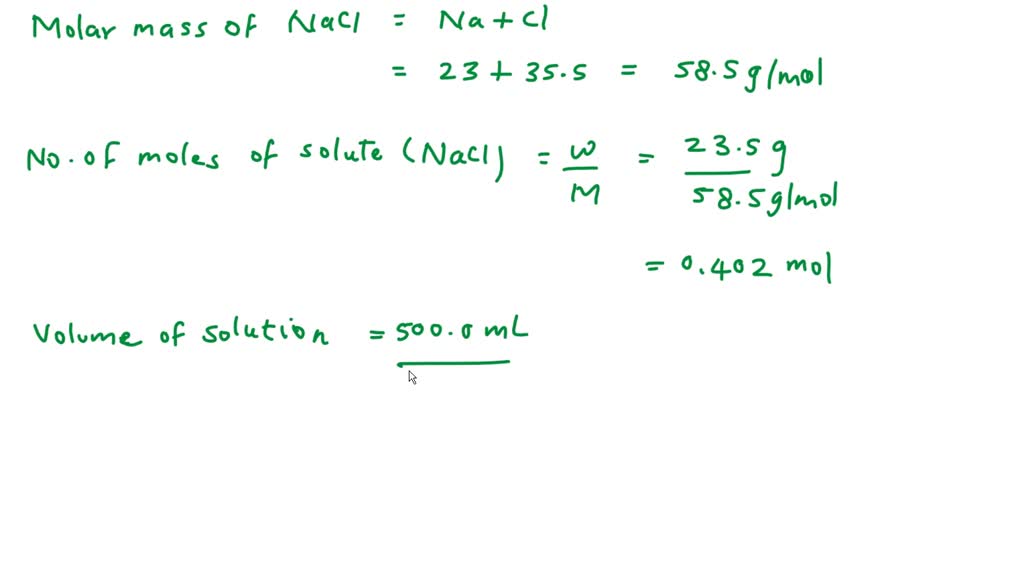 Molar mass of NaCl = Na + Cl
= 23 + 35.5 = 58.5 g/mol
No. of moles of solute (NaCl) = w/M = 23.5 g / 58.5 g/mol
= 0.402 mol
Volume of solution = 500.0 mL